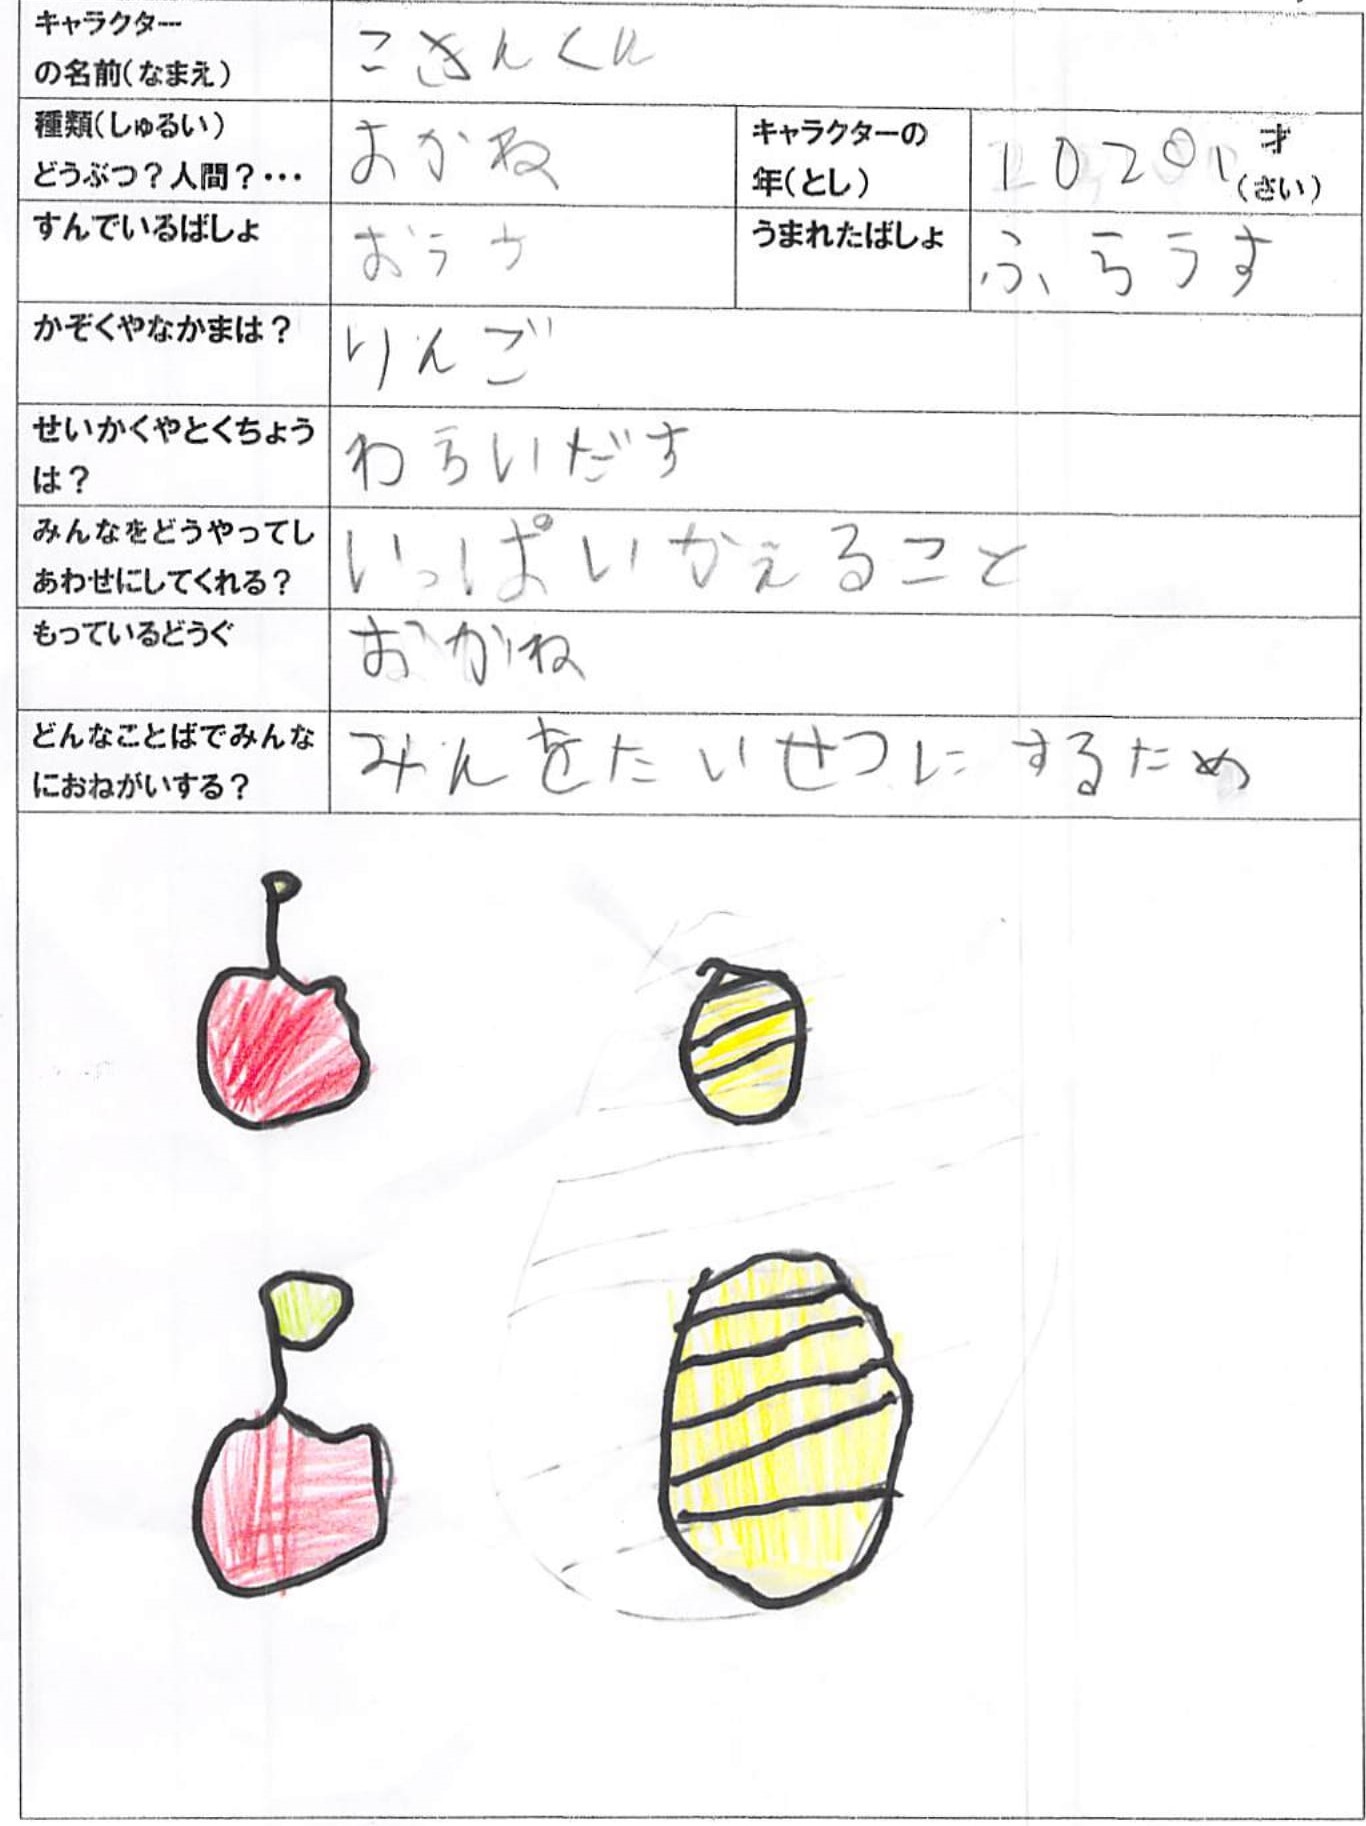 キャラクター
の名前(なまえ)
こきんくん
種類(しゅるい)
どうぶつ?人間?・・・
おかね
キャラクターの
年(とし)
才
(さい)
すんでいるばしょ
うまれたばしょ
ふらうす
かぞくやなかまは?
りんご
せいかくやとくちょう
は?
わらいだす
みんなをどうやってし
あわせにしてくれる?
いっぱいかえること
もっているどうぐ
おかね
どんなことばでみんな
におねがいする?
みんをたいせつにするため